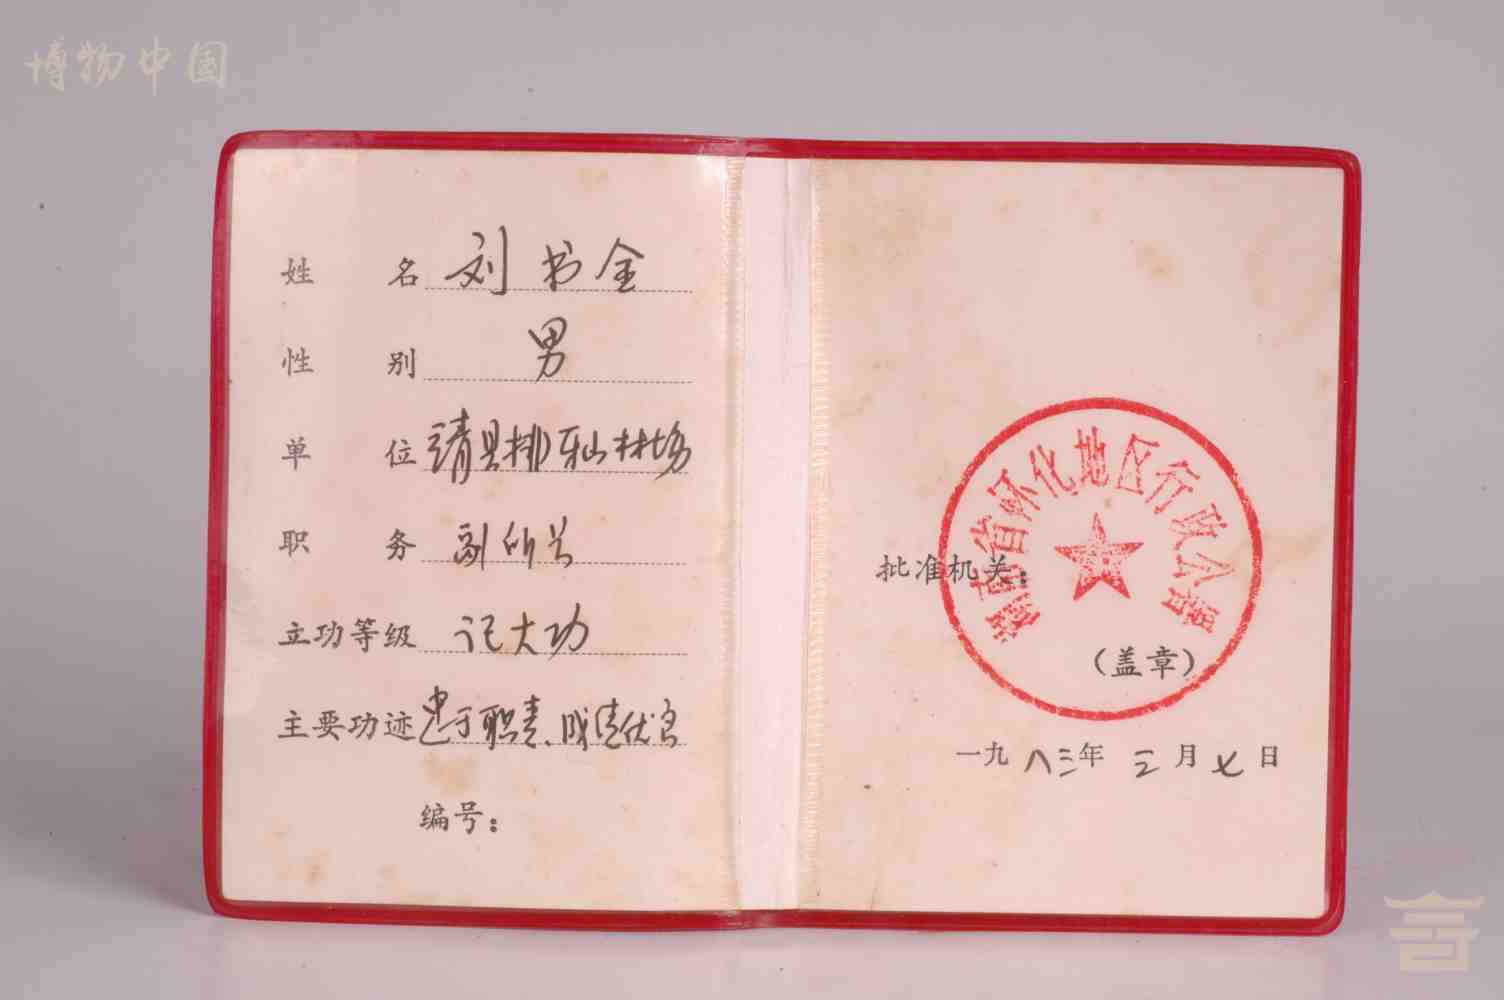 博物中国
姓名 刘书全
性别 男
单位 靖县排牙山林场
职务 副所长
立功等级 记大功
主要功迹 忠于职责、成绩优良
编号：
湖南省怀化地区行政公署
批准机关：
（盖章）
一九八三年 三月七日